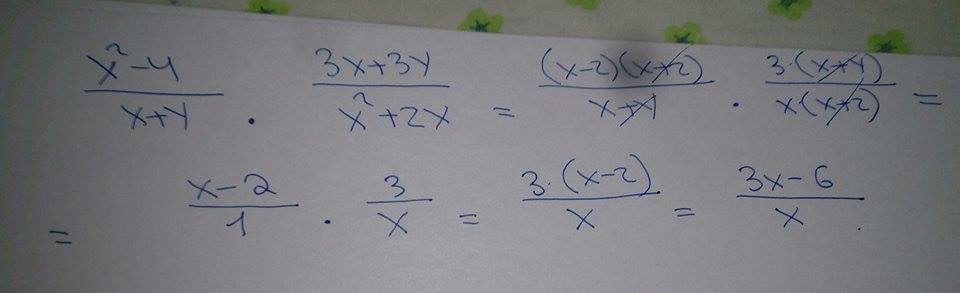 (x²-4)/(x+y) · (3x+3y)/(x²+2x) = ((x-2)(x+2))/(x+y) · (3·(x+y))/(x·(x+2)) =
= (x-2)/1 · 3/x = (3·(x-2))/x = (3x-6)/x.